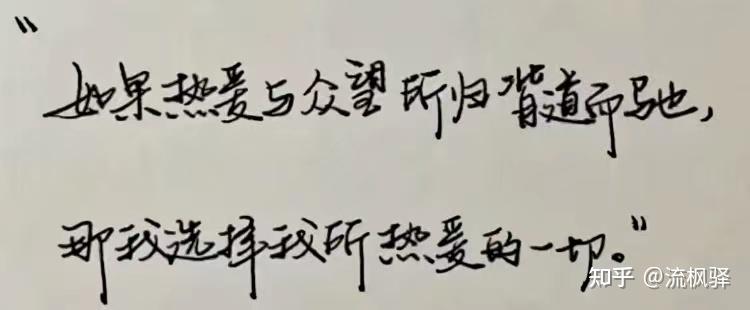 “如果热爱与众望所归背道而驰，
那我选择我所热爱的一切。”
知乎 @流枫驿